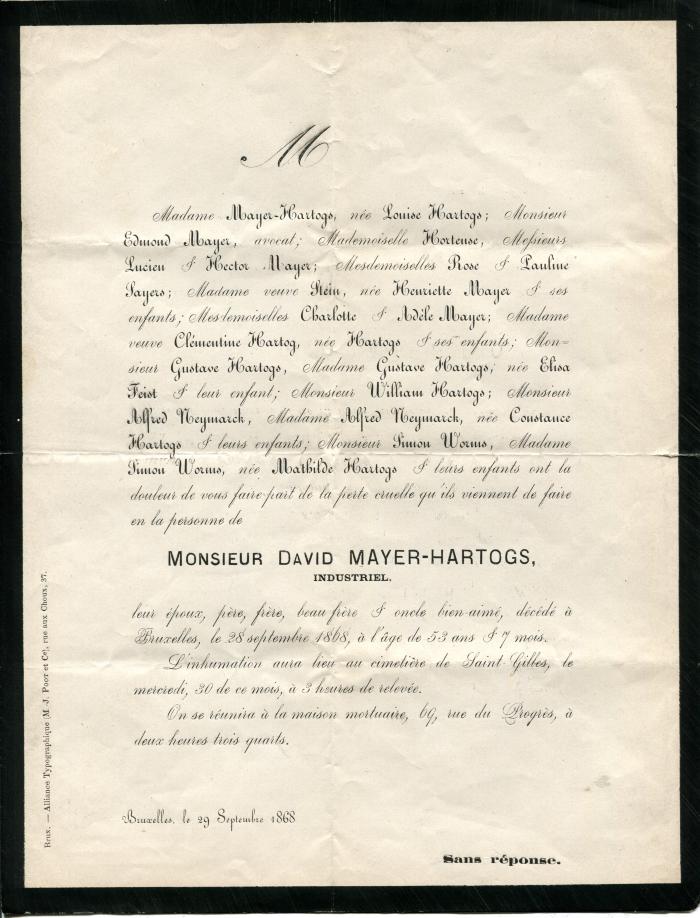 M
Madame Mayer-Hartogs, née Louise Hartogs; Monsieur
Edmond Mayer, avocat; Mademoiselle Hortense, Messieurs
Lucien & Hector Mayer; Mesdemoiselles Rose & Pauline
Sayers; Madame veuve Stein, née Henriette Mayer & ses
enfants; Mesdemoiselles Charlotte & Adèle Mayer; Madame
veuve Clémentine Hartog, née Hartogs & ses enfants; Mon=
sieur Gustave Hartogs, Madame Gustave Hartogs, née Elisa
Feist & leur enfant; Monsieur William Hartogs; Monsieur
Alfred Neymarck, Madame Alfred Neymarck, née Constance
Hartogs & leurs enfants; Monsieur Simon Worms, Madame
Simon Worms, née Mathilde Hartogs & leurs enfants ont la
douleur de vous faire part de la perte cruelle qu'ils viennent de faire
en la personne de
MONSIEUR DAVID MAYER-HARTOGS,
INDUSTRIEL.
leur époux, père, frère, beau frère & oncle bien-aimé, décédé à
Bruxelles, le 28 septembre 1868, à l'âge de 53 ans & 7 mois.
L'inhumation aura lieu au cimetière de Saint-Gilles, le
mercredi, 30 de ce mois, à 3 heures de relevée.
On se réunira à la maison mortuaire, 69, rue du Progrès, à
deux heures trois quarts.
Bruxelles, le 29 Septembre 1868
Sans réponse.
Brux. — Alliance Typographique (M.-J. Poot et Ce), rue aux Choux, 37.